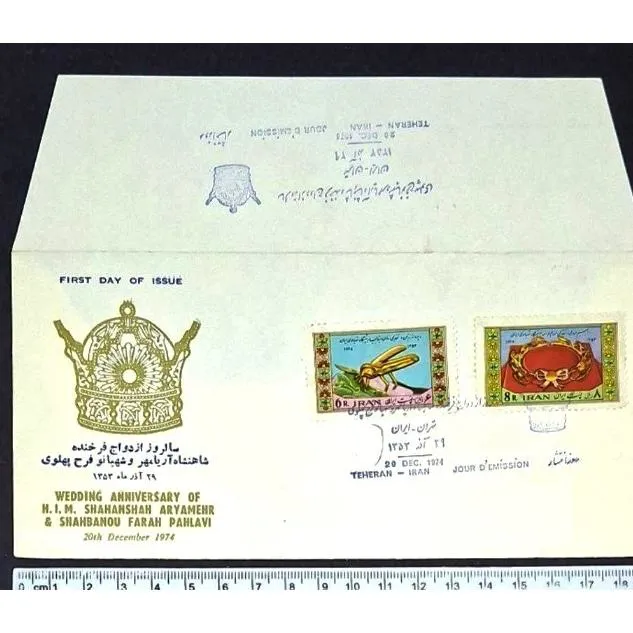 TEHERAN – IRAN
20 DEC. 1974 JOUR D'EMISSION
۲۹ آذر ۱۳۵۳
تهران - ایران
FIRST DAY OF ISSUE
سالروز ازدواج فرخنده
شاهنشاه آریامهر و شهبانو فرح پهلوی
۲۹ آذر ماه ۱۳۵۳
WEDDING ANNIVERSARY OF
H.I.M. SHAHANSHAH ARYAMEHR
& SHAHBANOU FARAH PAHLAVI
20th December 1974
6 R. IRAN
8 R. IRAN ۸
تهران - ایران
۲۹ آذر ۱۳۵۳
20 DEC. 1974 JOUR D'EMISSION
TEHERAN – IRAN
0 cm 1 2 3 4 5 6 7 8 9 10 11 12 13 14 15 16 17 18